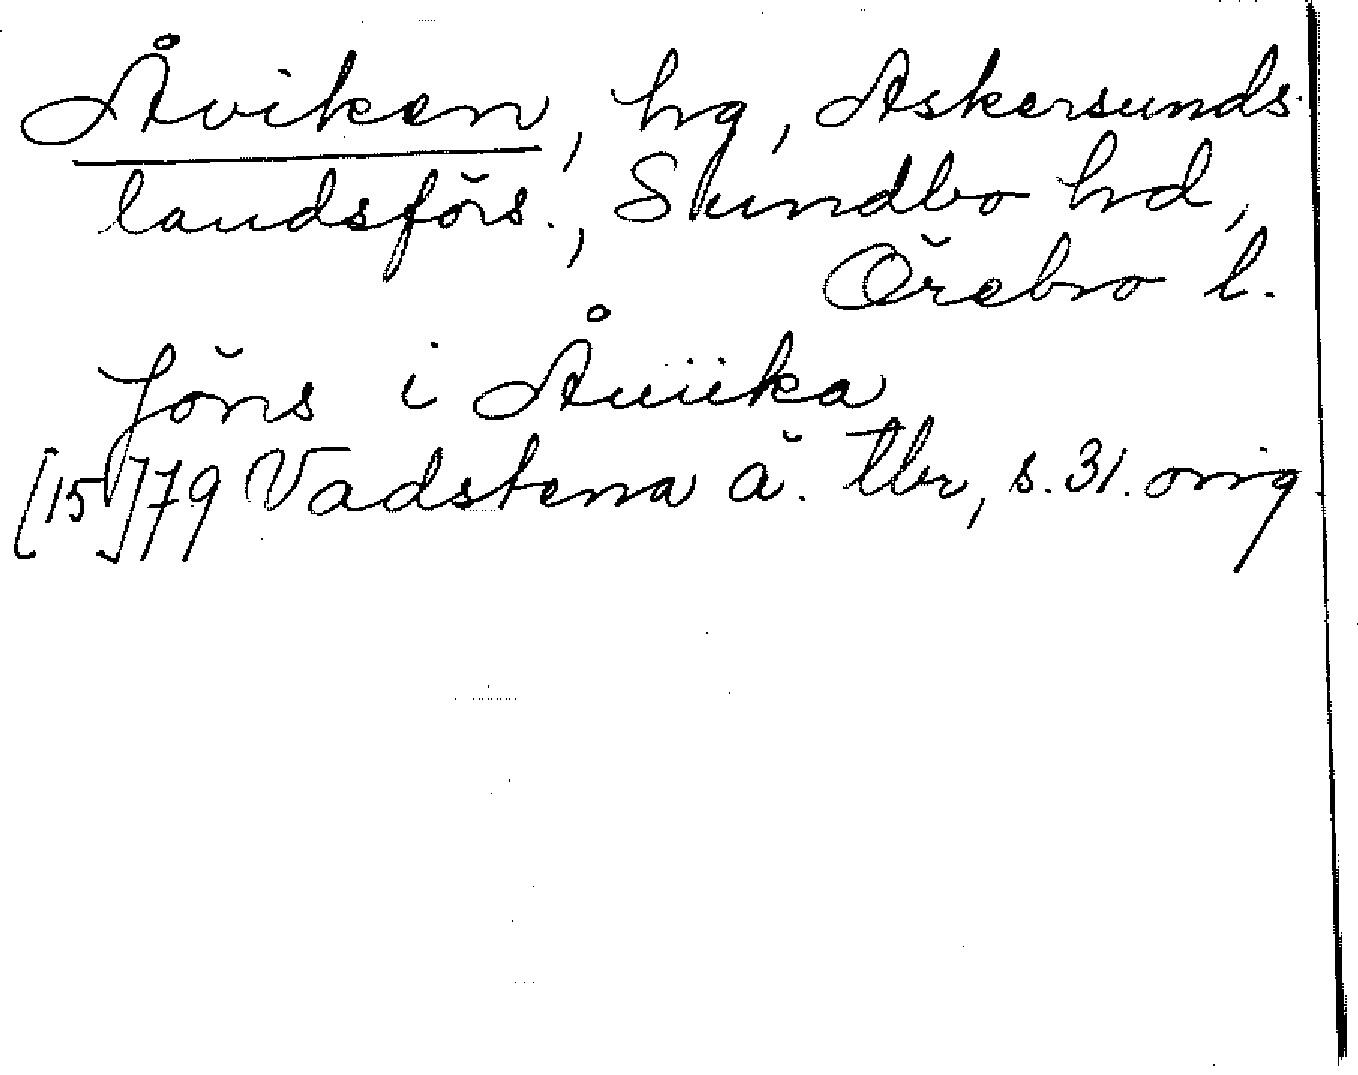 Åviken, hg, Askersunds
landsförs., Sundbo hd,
Örebro l.
Jöns i Åuiika
[15]79 Vadstena ä. tbr, s. 31. orig